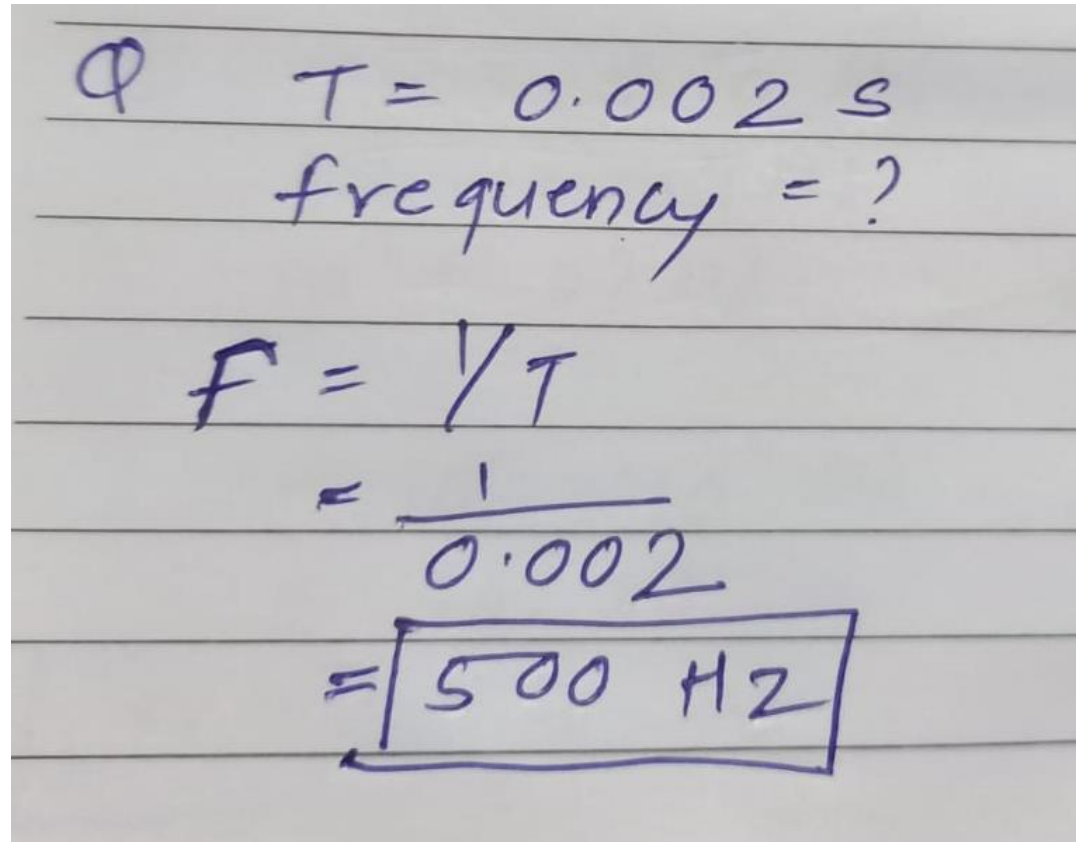 Q T = 0.002 s
frequency = ?
F = 1/T
= 1
0.002
= 500 Hz